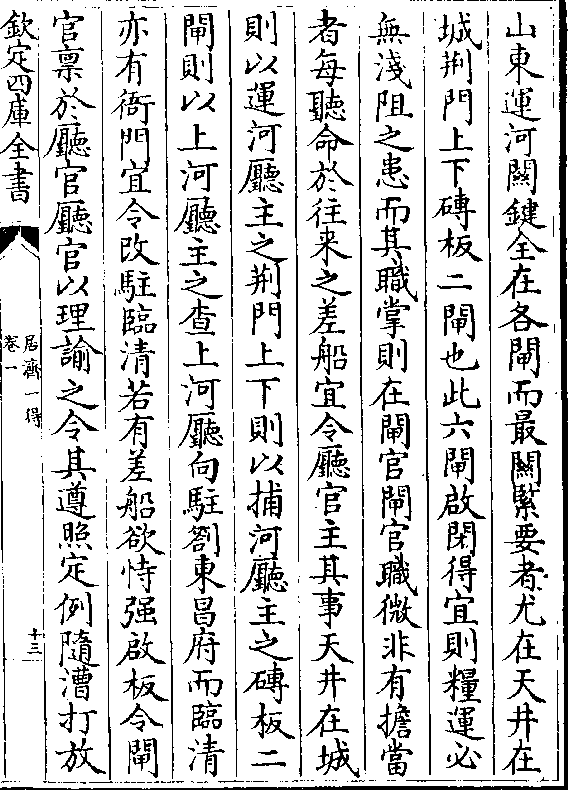 山東運河闗鍵全在各閘而最闗緊要者尤在天井在
城荆門上下磚板二閘也此六閘啟閉得宜則糧運必
無淺阻之患而其職掌則在閘官閘官職微非有擔當
者每聽命於往来之差船宜令廳官主其事天井在城
則以運河廳主之荆門上下則以捕河廳主之磚板二
閘則以上河廳主之查上河廳向駐劄東昌府而臨清
亦有衙門宜令改駐臨清若有差船欲恃强啟板令閘
官禀於廳官廳官以理諭之令其遵照定例隨漕打放
欽定四庫全書
居濟一得
卷一
十三